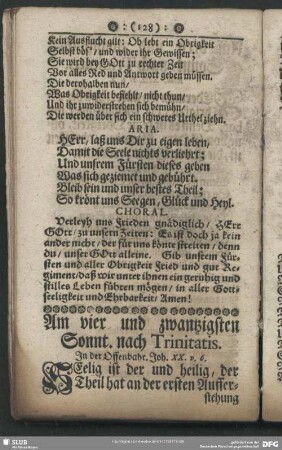 :(128):
Kein Ausflucht gilt: Ob lebt ein Obrigkeit
Selbst böß', und wider ihr Gewissen;
Sie wird bey GOtt zu rechter Zeit
Vor alles Red und Antwort geben müssen.
Die derohalben nun,
Was Obrigkeit befiehlt, nicht thun,
Und ihr zuwiderstreben sich bemühn,
Die werden über sich ein schweres Urthel ziehn.
ARIA.
HErr, laß uns Dir zu eigen leben,
Damit die Seele nichts verliehrt;
Und unserm Fürsten dieses geben
Was sich geziemet und gebührt.
Bleib sein und unser bestes Theil;
So krönt uns Seegen, Glück und Heyl.
CHORAL.
Verleyh uns Frieden gnädiglich, HErr
GOtt, zu unsern Zeiten: Es ist doch ja kein
ander nicht, der für uns könte streiten, denn
du, unser GOtt alleine. Gib unserm Für-
sten und aller Obrigkeit Fried und gut Re-
giment, daß wir unter ihnen ein geruhig und
stilles Leben führen mögen, in aller Gott-
seeligkeit und Ehrbarkeit, Amen!
Am vier und zwantzigsten
Sonnt. nach Trinitatis.
In der Offenbahr. Joh. XX. v. 6.
SEelig ist der und heilig, der
Theil hat an der ersten Auffer-
stehung
SLUB
DFG